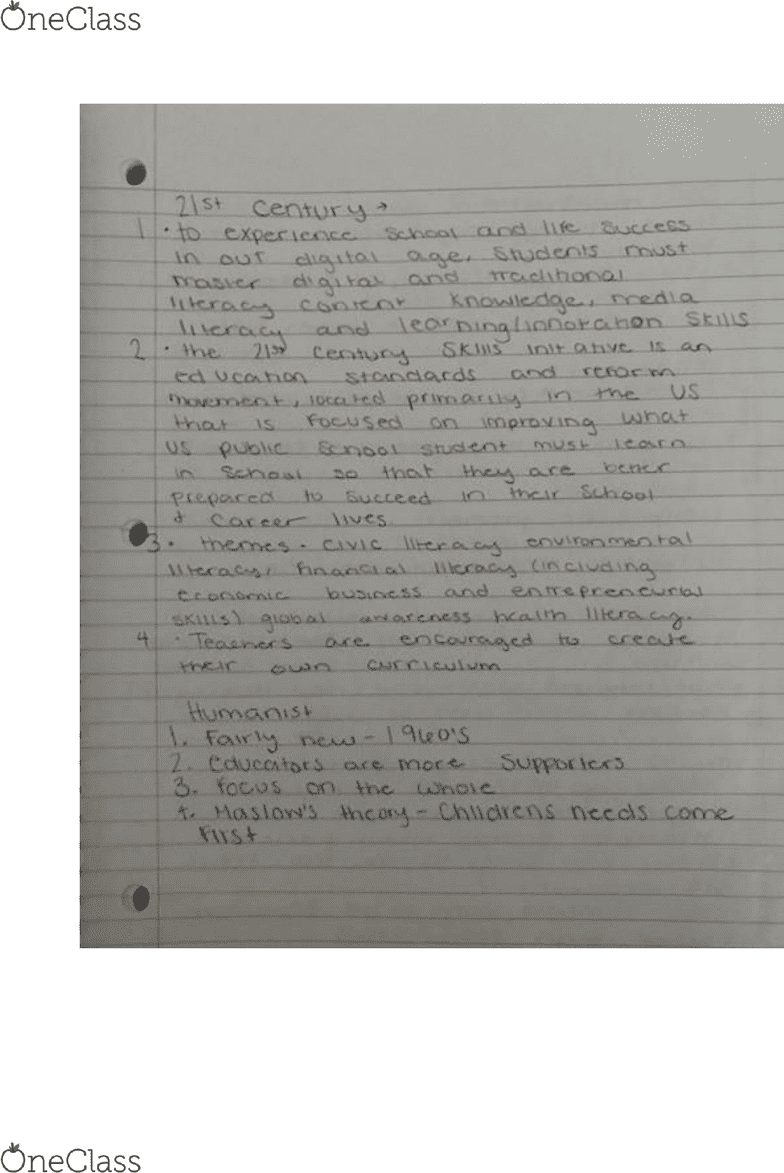 OneClass
21st Century →
1 • to experience school and life success
in our digital age, students must
master digital and traditional
literacy content knowledge, media
literacy and learning/innovation skills
2 • the 21st century skills initative is an
education standards and reform
movement, located primarily in the US
that is focused on improving what
US public school student must learn
in school so that they are better
prepared to succeed in their school
+ career lives
3. themes - civic literacy environmental
literacy, financial literacy (including
economic business and entrepreneurial
skills) global awareness health literacy.
4 • Teachers are encouraged to create
their own curriculum
Humanist
1. Fairly new - 1960's
2. educators are more supporters
3. focus on the whole
4. Maslow's theory - Childrens needs come
first
OneClass